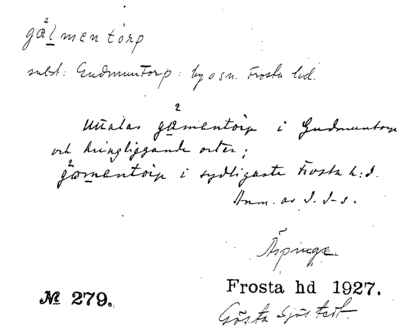 gålmentorp
subst: Gudmuntorp: by o sn. Frosta hd.
2
Uttalas gåmentorp i Gudmuntorp
och kringliggande orter;
2
gåmentorp i sydligaste Frosta h:d.
Anm. av I. I-s.
Äspinge.
Frosta hd 1927.
№ 279.
Gösta Sjöstedt